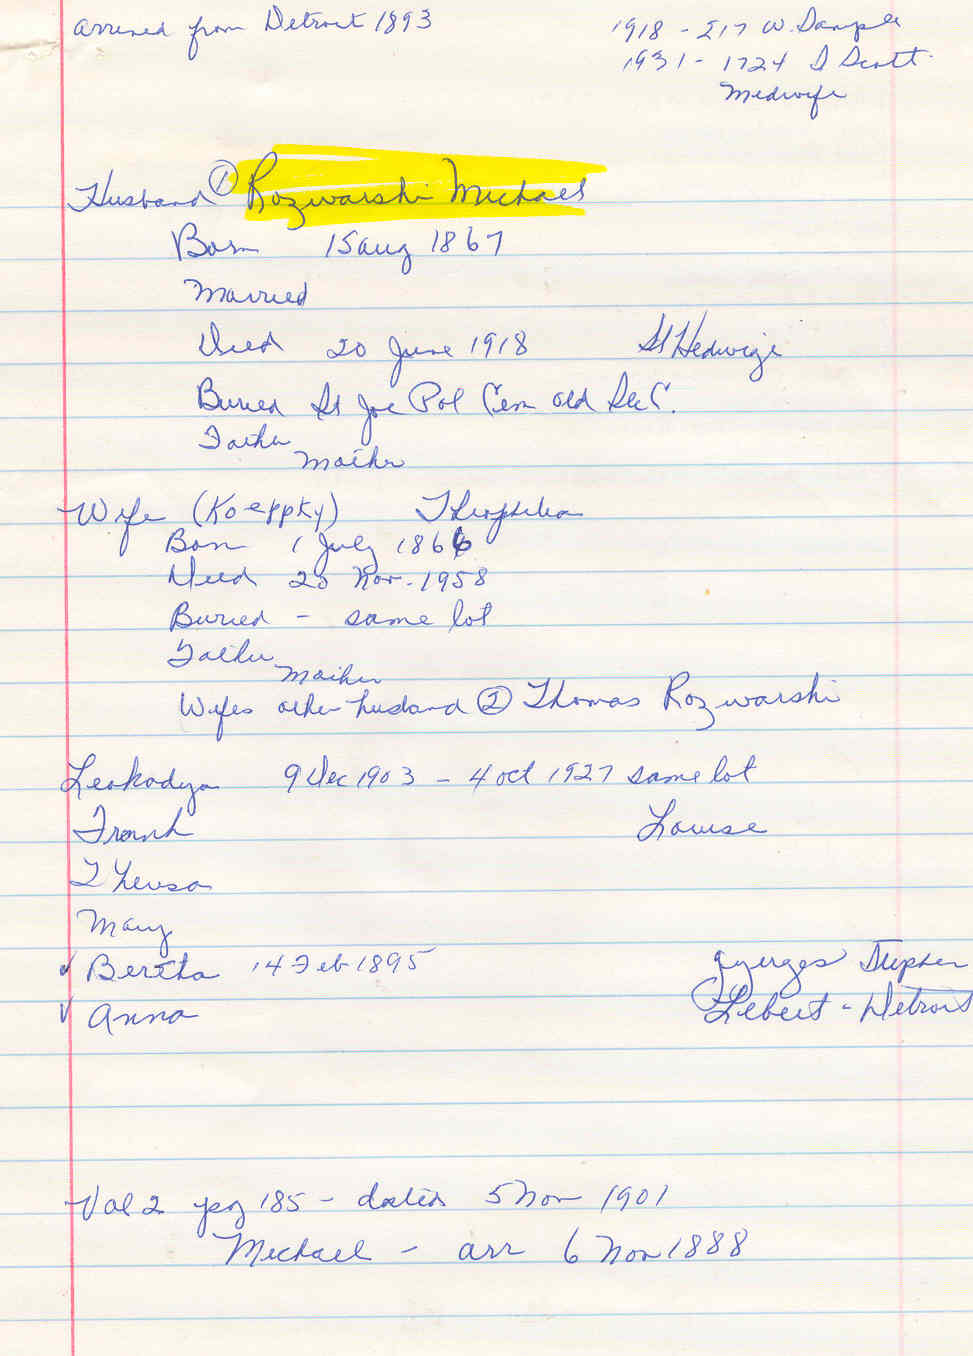 arrived from Detroit 1893
1918 - 217 W. Sample
1931 - 1724 S Scott
Medwife
Husband ① Rozwarski Michael
Born 15 aug 1867
Married
Died 20 June 1918 St Hedwige
Buried St Joe Pol Cem old Sec C.
Father
Mother
Wife (Koeppky) Theophelia
Born 1 July 1866
Died 20 Nov. 1958
Buried - same lot
Father
Mother
Wifes other husband ② Thomas Rozwarski
Leokadya 9 Dec 1903 - 4 oct 1927 same lot
Frank Louise
Thersa
Mary
✓ Bertha 14 Feb 1895 Gyorges Stephen
✓ Anna Lebert - Detroit
Vol 2 pg 185 - dated 5 Nov 1901
Michael - arr 6 Nov 1888